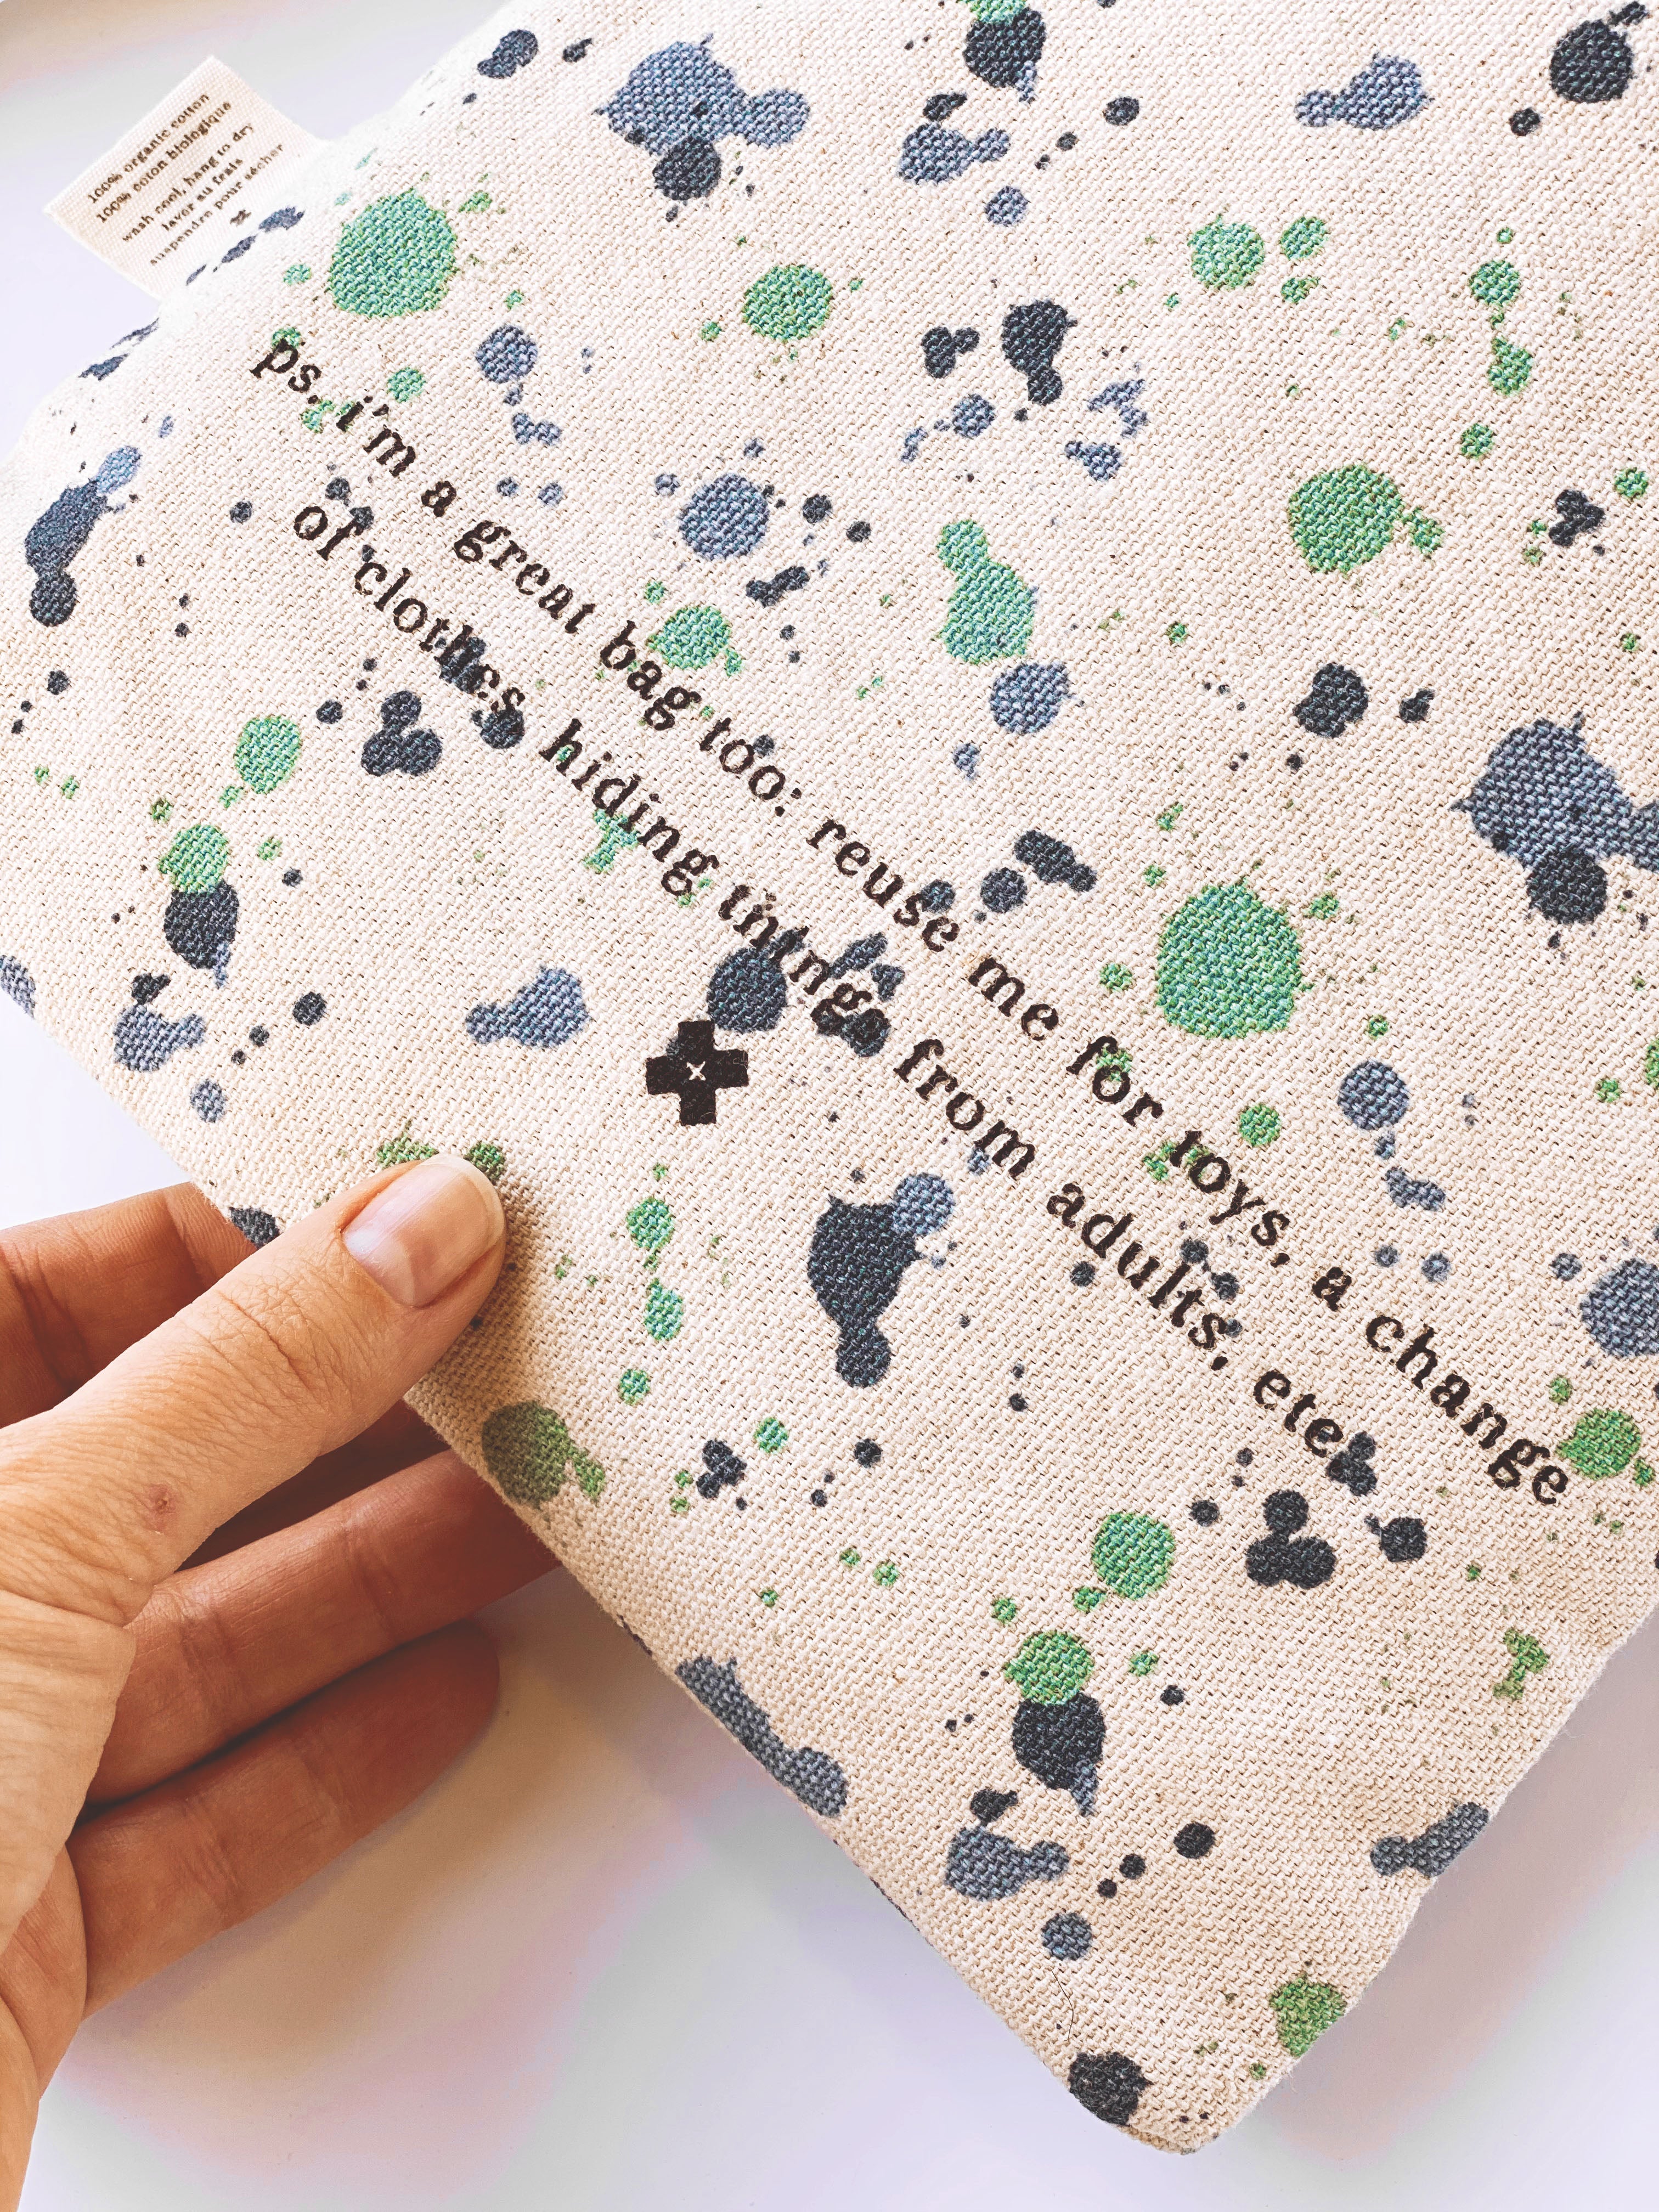 100% organic cotton
100% coton biologique
wash cool, hang to dry
laver au frais
suspendre pour sécher
ps. i'm a great bag too: reuse me for toys, a change
of clothes, hiding things from adults, etc.